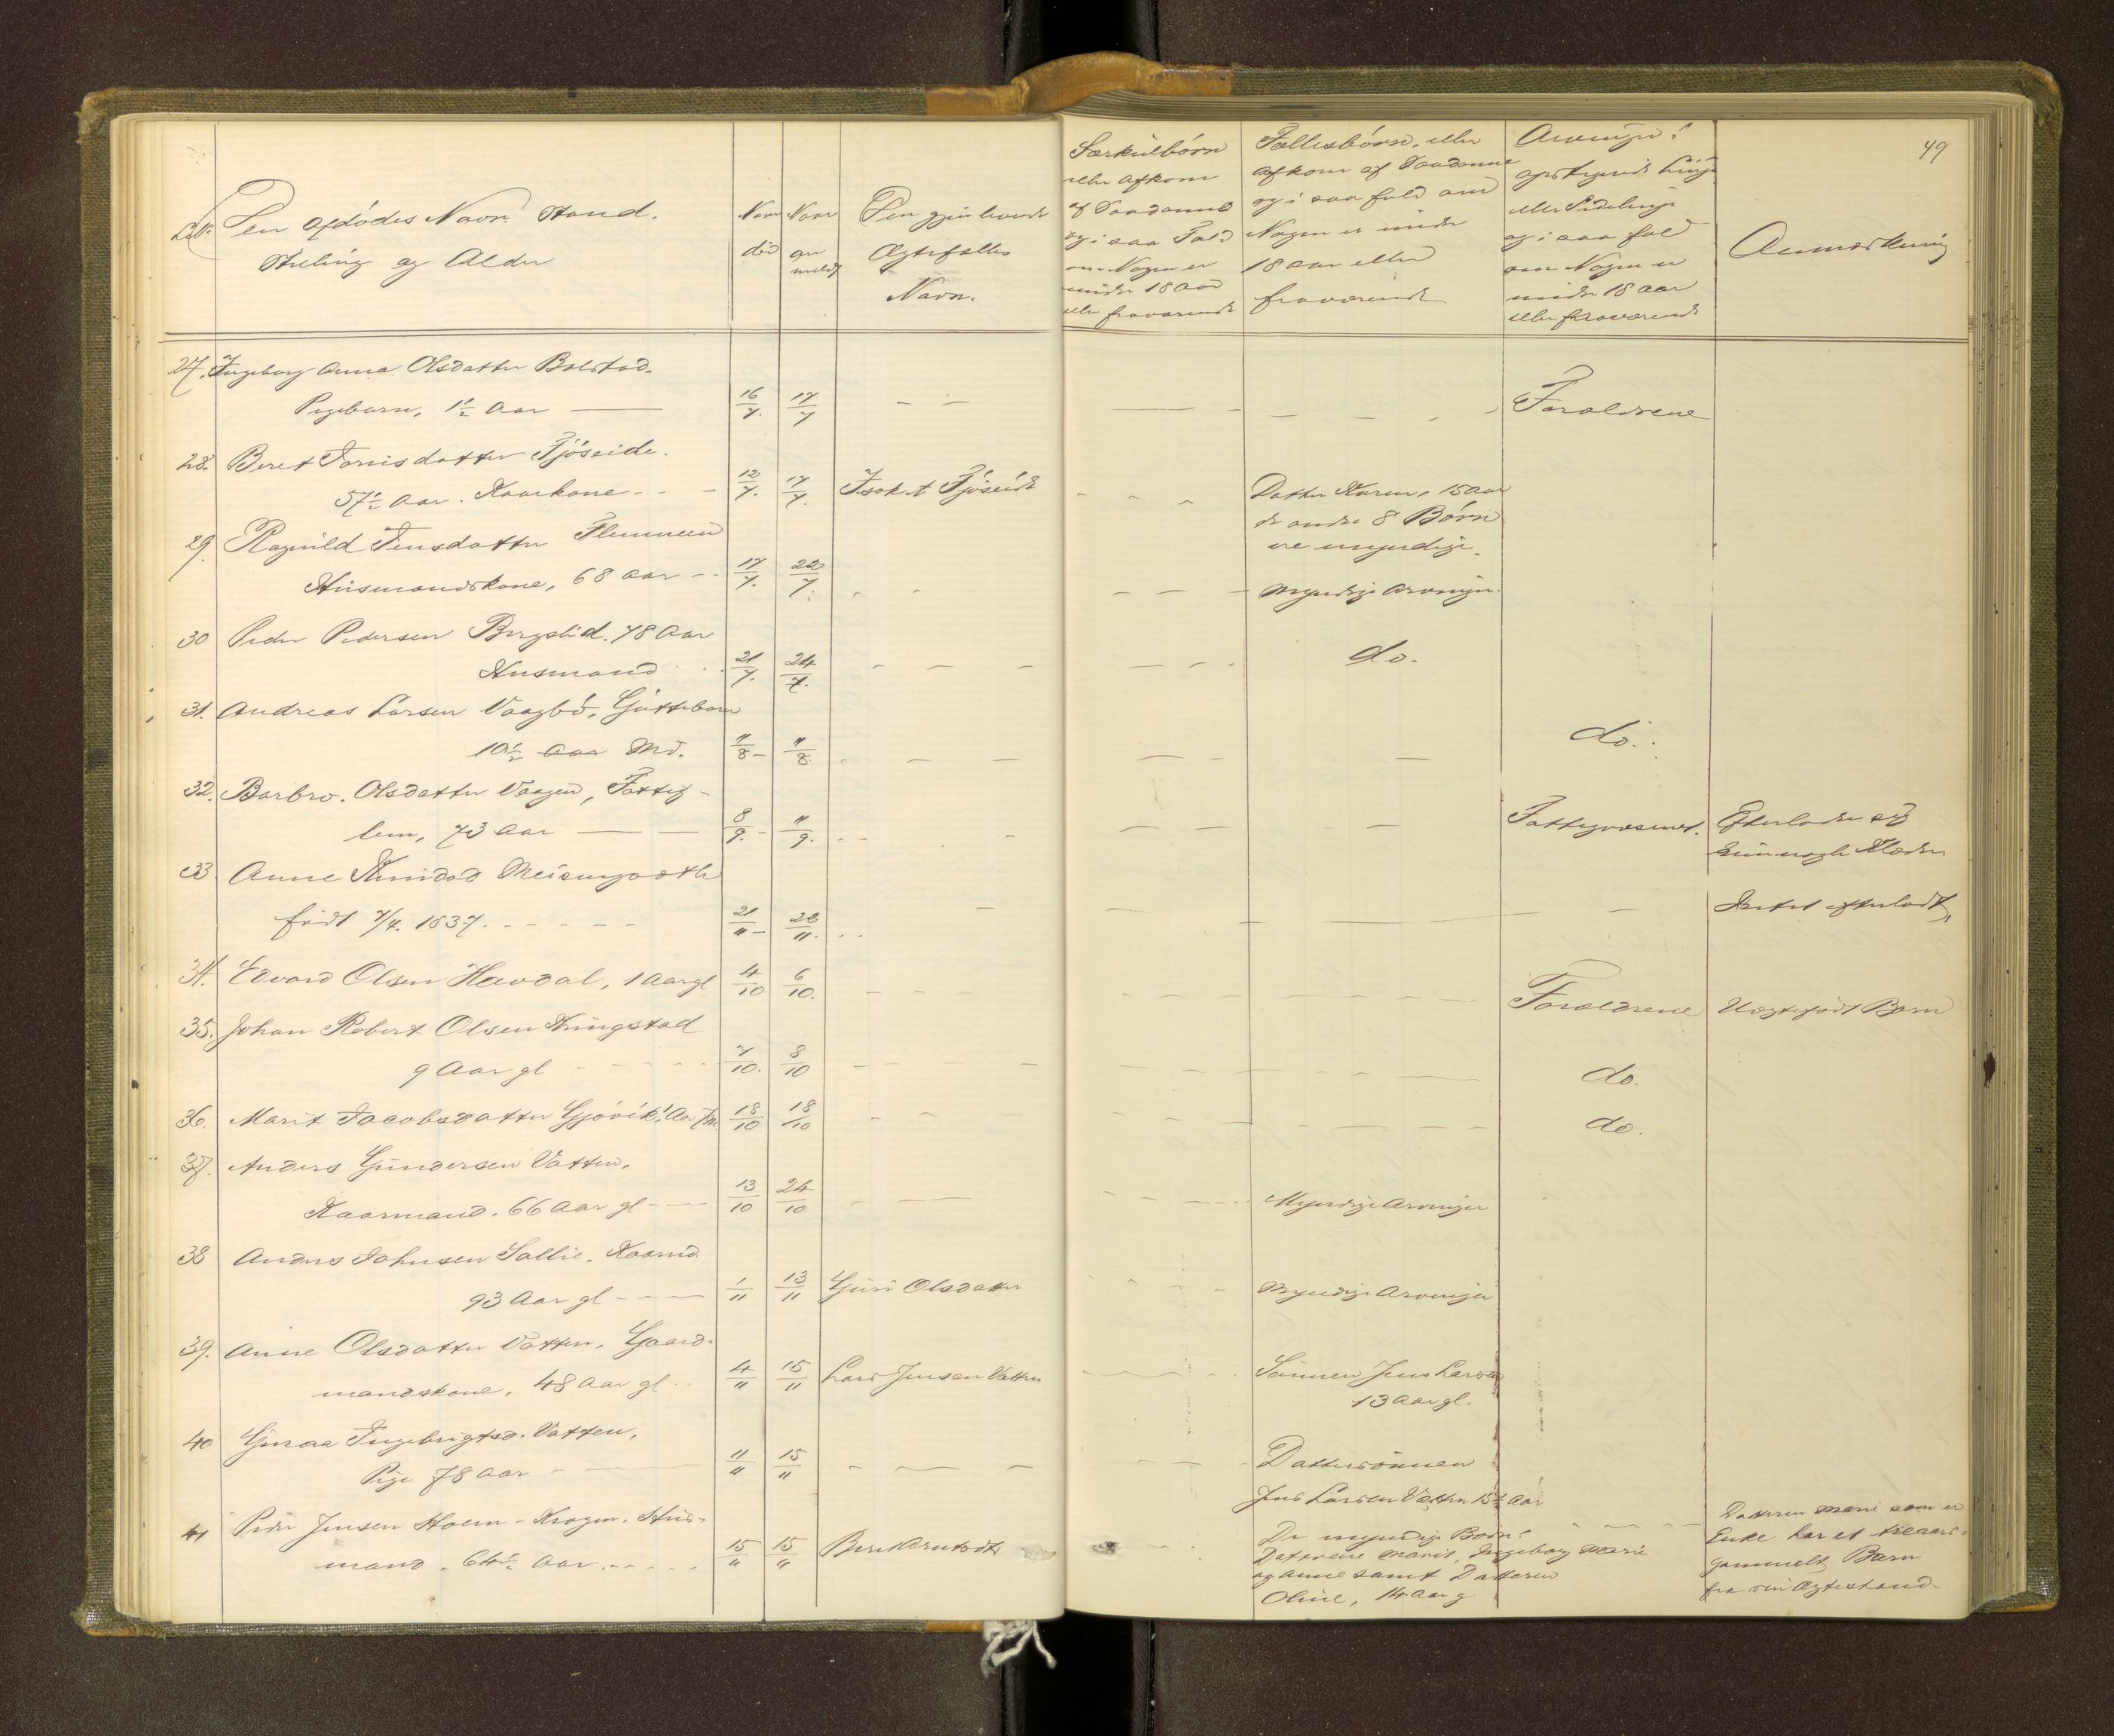 49
Den afdødes Navn. Stand.
Stilling og Alder
Naar død
Naar an meldt
Den gjenlevende
Ægtefælles
Navn.
Særkulbørn
eller Afkom
af Saadanne
og i saa Fald
om Nogen er
under 18 Aar
eller fraværende
Fællesbørn, eller
Afkom af Saadanne
og i saa fald om
Nogen er under
18 Aar eller
fraværende
Arvinger i
opstigende Linje
eller Sidelinje
og i saa fald
om Nogen er
under 18 Aar
eller fraværende
Anmærkning
27. Ingeborg Anna Olsdatter Bolstad.
Pigebarn, 1½ Aar — 16/7. 17/7 Forældrene
28. Beret Tørrisdatter Fjøseide.
57½ Aar. Kaarkone - - 12/7. 17/7. Isak A Fjøseide Datter Karen, 15 Aar
de andre 8 Børn
ere myndige.
29. Ragnild Jensdatter Flemmen
Husmandskone, 68 Aar - - 17/7. 22/7. Myndige Arvinger.
30 Peder Pedersen Bergslid. 78 Aar
Husmand 21/7. 24/7. do.
31. Andreas Larsen Vaagbø, Guttebarn
10½ Aar Md. 11/8 - 11/8 do.
32. Barbro. Olsdatter Vaagen, Fattig-
lem, 73 Aar — 8/9. - 11/9. Fattigvæsenet. Efterlader sig
kun nogle Klæder
33. Anne
født 7/4. 1837. 21/11 - 22/11. Intet efterladt
34. Edvard Olsen Havdal, 1 Aar gl 4/10 6/10. Forældrene Uægtefødt Barn
35. Johan Robert Olsen Kringstad
9 Aar gl 7/10. 8/10 do.
36. Marit Jacobsdatter Gjøvik 1 Aar 7 M 18/10 18/10 do.
37. Anders Gundersen Vatten,
Kaarmand. 66 Aar gl — 13/10 24/10 Myndige Arvinger
38 Anders Johnsen Sollie. Kaarmd.
93 Aar gl — 1/11 13/11 Guri Olsdatter Myndige Arvinger
39. Anne Olsdatter Vatten. Gaard-
mandskone, 48 Aar gl 4/11 15/11 Lars Jensen Vatten Sønnen Jens Larsen
13 Aar gl.
40 Ingebrigtsd. Vatten,
Pige 78 Aar 11/11 15/11 Dattersønnen
Jens Larsen Vatten 13½ Aar
41 Peder Jensen Holm - Krogen. Hus-
mand. 64½ Aar. 15/11 15/11 Beret Arntsdtr De myndige Børn:
Døttrene Marit, Ingeborg Marie
og Anne samt Datteren
Oline, 14 Aar g
Datteren Marie som er
Enke har et treaars
gammelt Barn
fra sin Ægtestand.